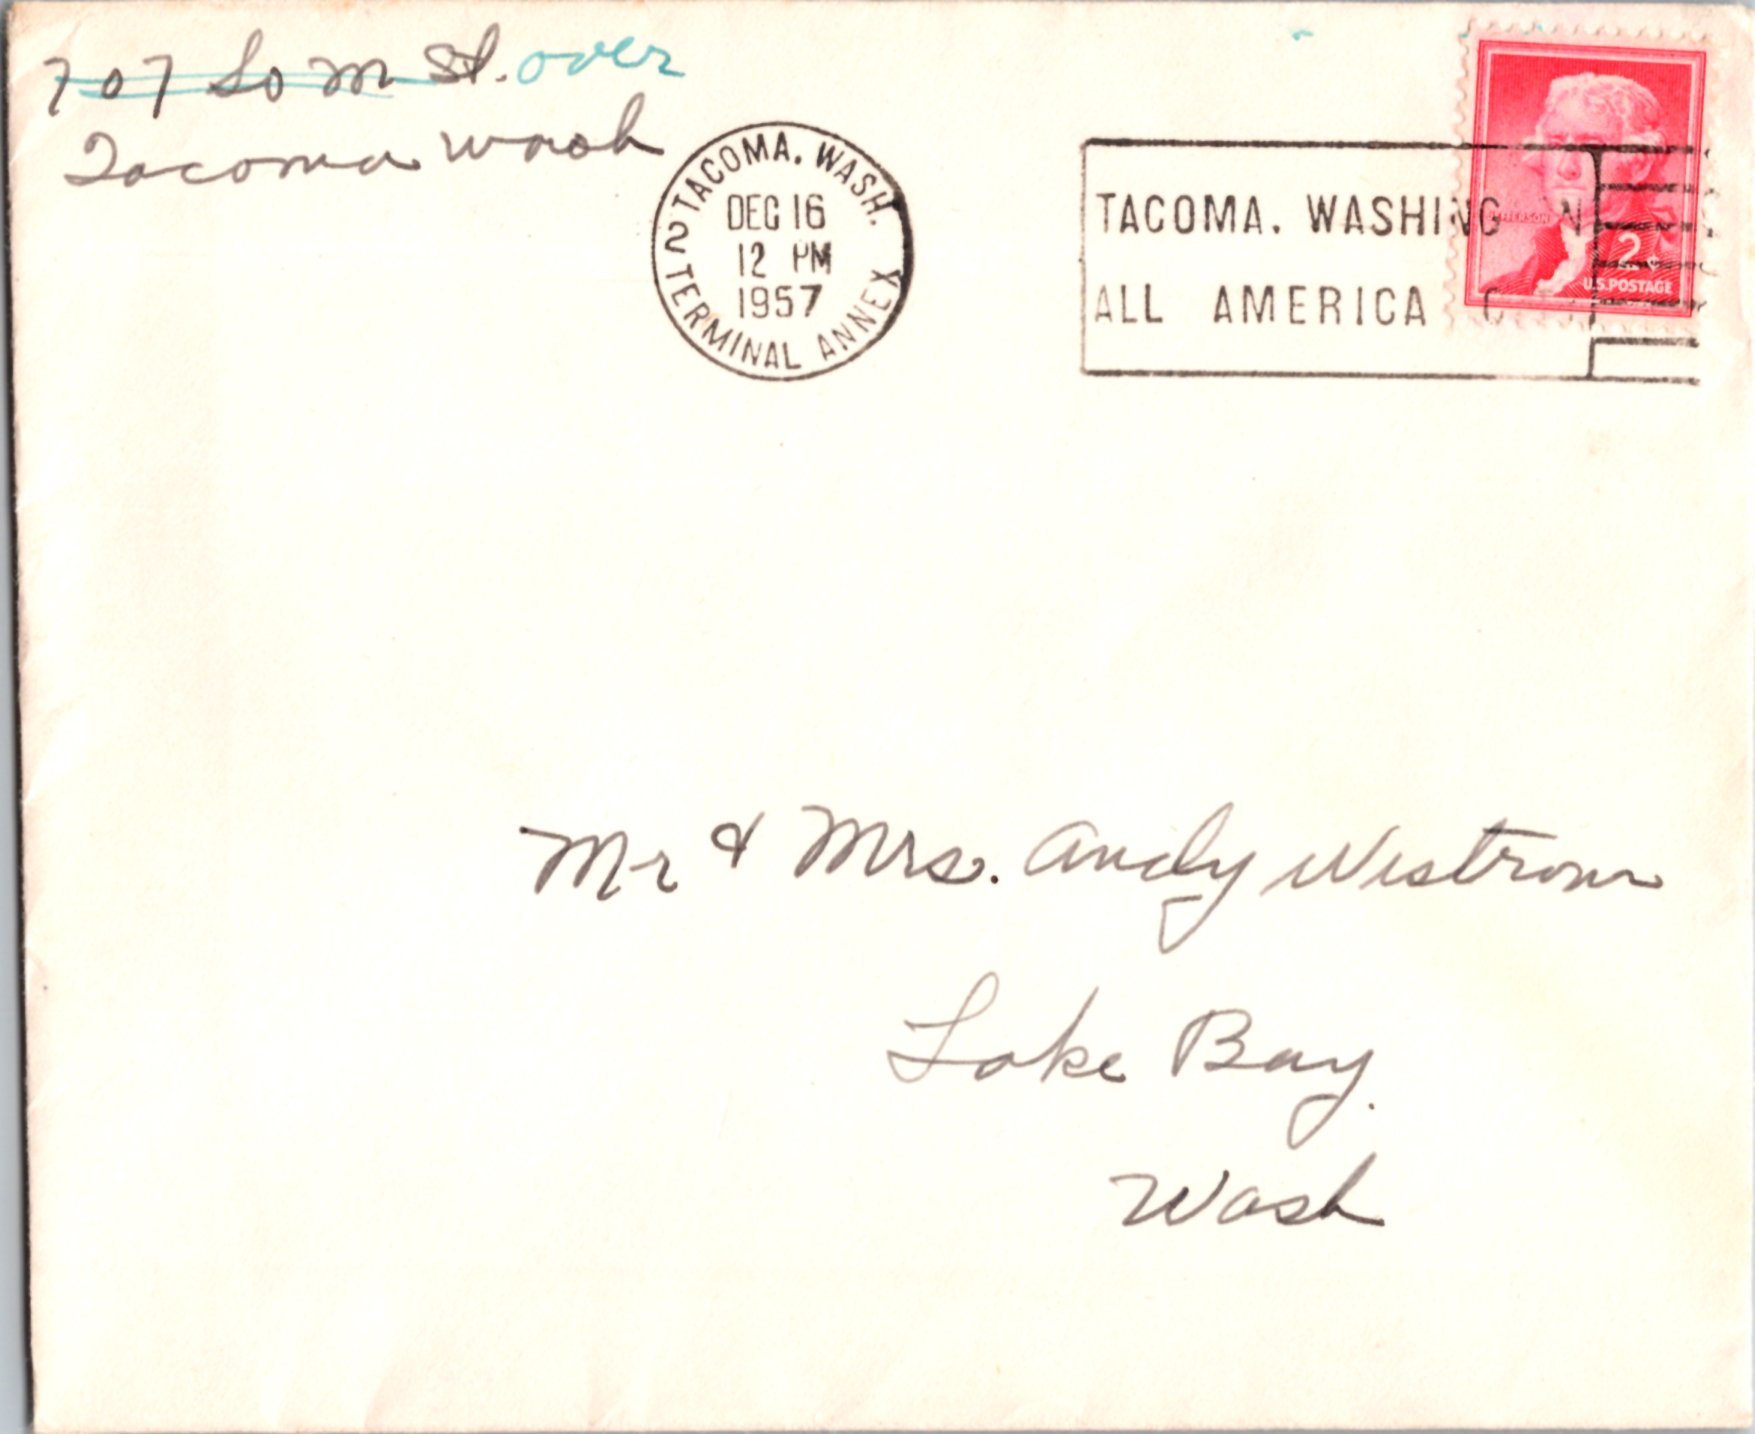 707 So M St. over
Tacoma Wash
TACOMA, WASH.
DEC 16
12 PM
1957
2 TERMINAL ANNEX
TACOMA, WASHING N
ALL AMERICA C
JEFFERSON
2¢
U.S. POSTAGE
Mr & Mrs. Andy Westrom
Lake Bay.
Wash